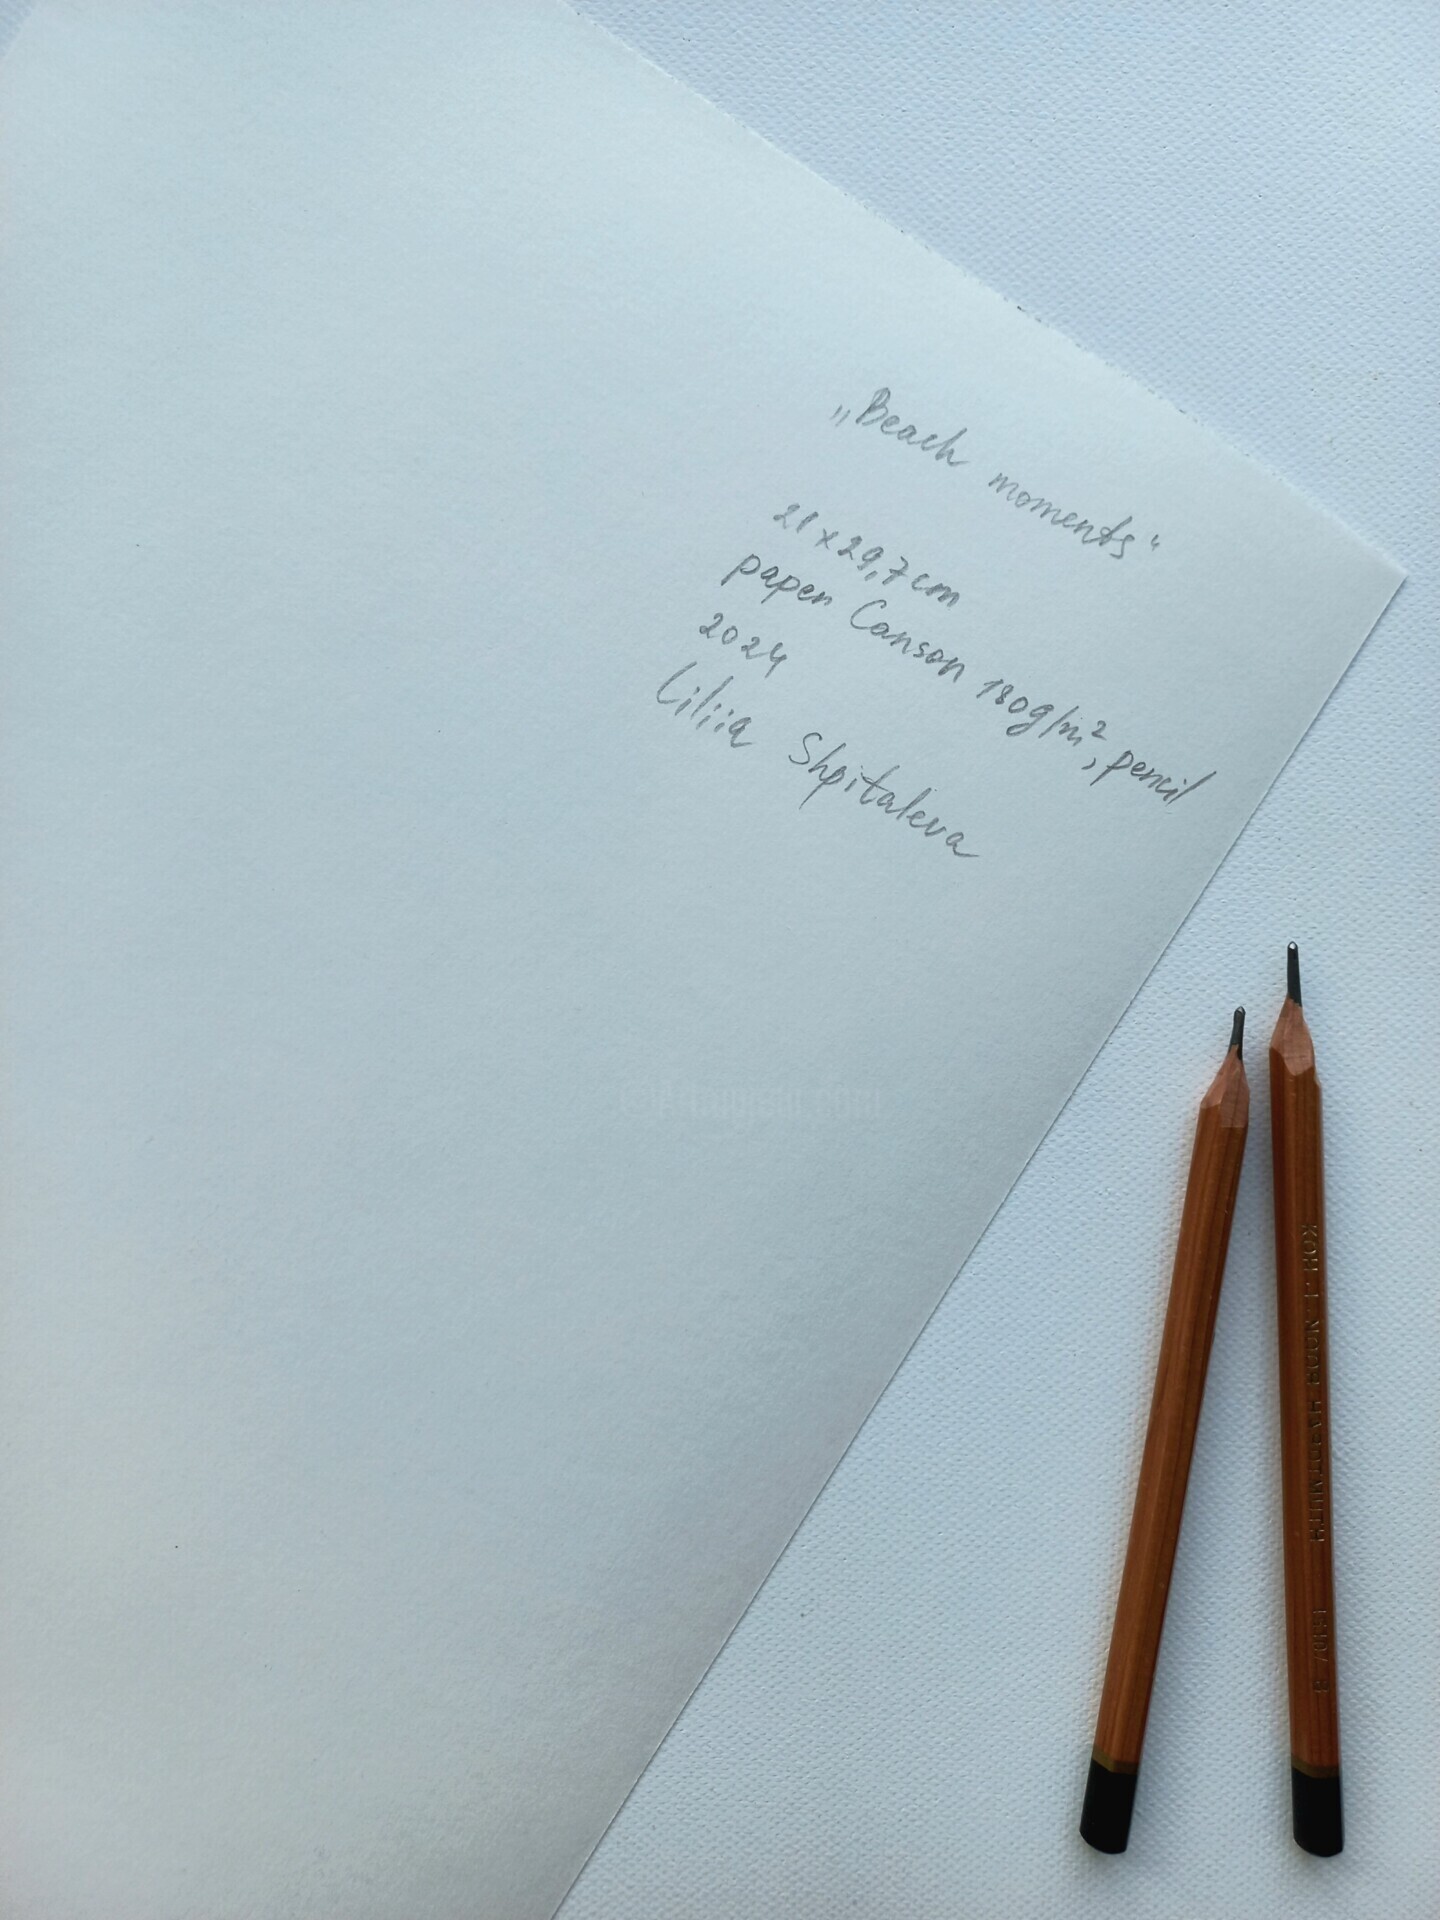 „Beach moments“
21 x 29,7 cm
paper Canson 180g/m², pencil
2024
Liliia Shpitaleva
KOH-I-NOOR HARDTMUTH